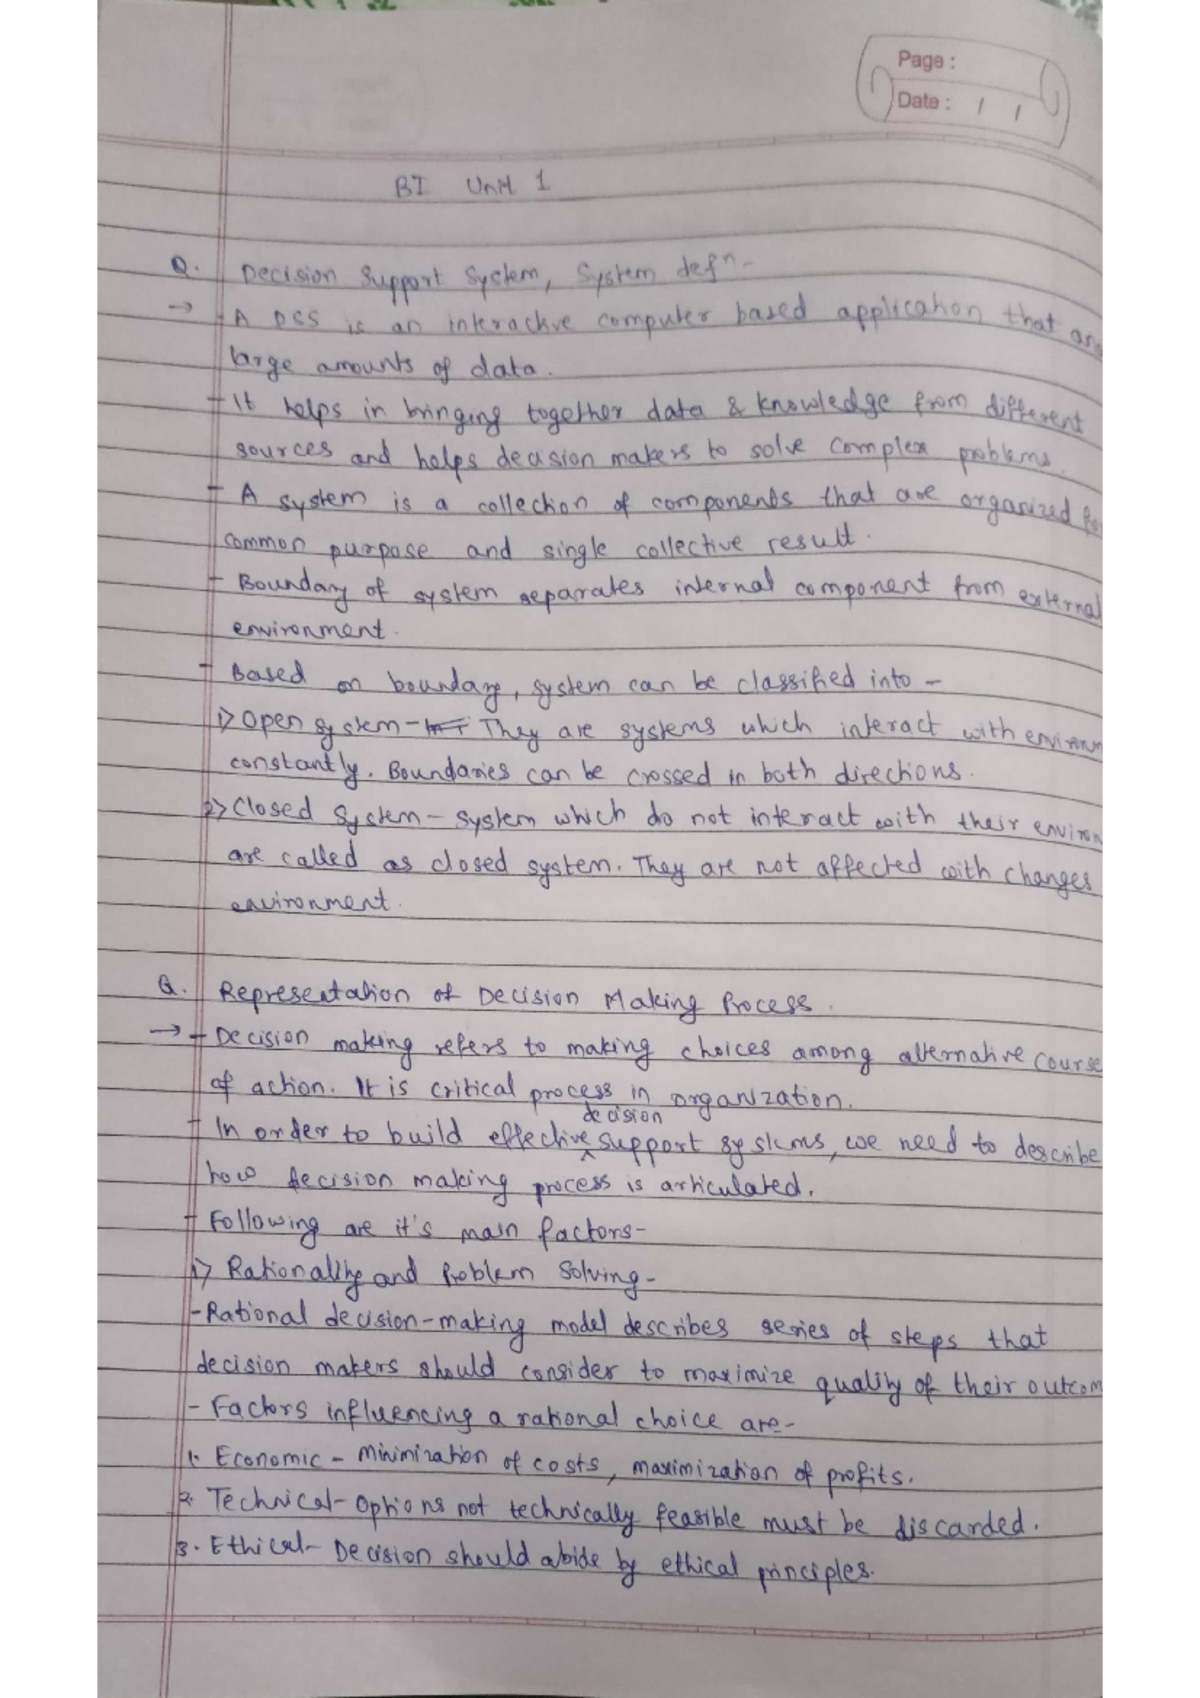 Page :
Date : / /
BI Unit 1
Q. Decision Support System, System defn -
→ - A DSS is an interactive computer based application that
large amounts of data.
- It helps in bringing together data & knowledge from different
sources and helps decision makers to solve complex problems.
- A system is a collection of components that are organized
common purpose and single collective result.
- Boundary of system separates internal component from external
environment.
- Based on boundary, system can be classified into -
1) Open system - They are systems which interact with
constantly. Boundaries can be crossed in both directions.
2) Closed System - System which do not interact with their
are called as closed system. They are not affected with changes
environment.
Q. Representation of Decision Making Process.
→ - Decision making refers to making choices among alternative course
of action. It is critical process in organization.
- In order to build effective decision support systems, we need to describe
how decision making process is articulated.
- Following are it's main factors-
1) Rationality and Problem Solving -
- Rational decision-making model describes series of steps that
decision makers should consider to maximize quality of their
- Factors influencing a rational choice are-
1. Economic - Minimization of costs, maximization of profits.
2. Technical - Options not technically feasible must be discarded.
3. Ethical - Decision should abide by ethical principles.